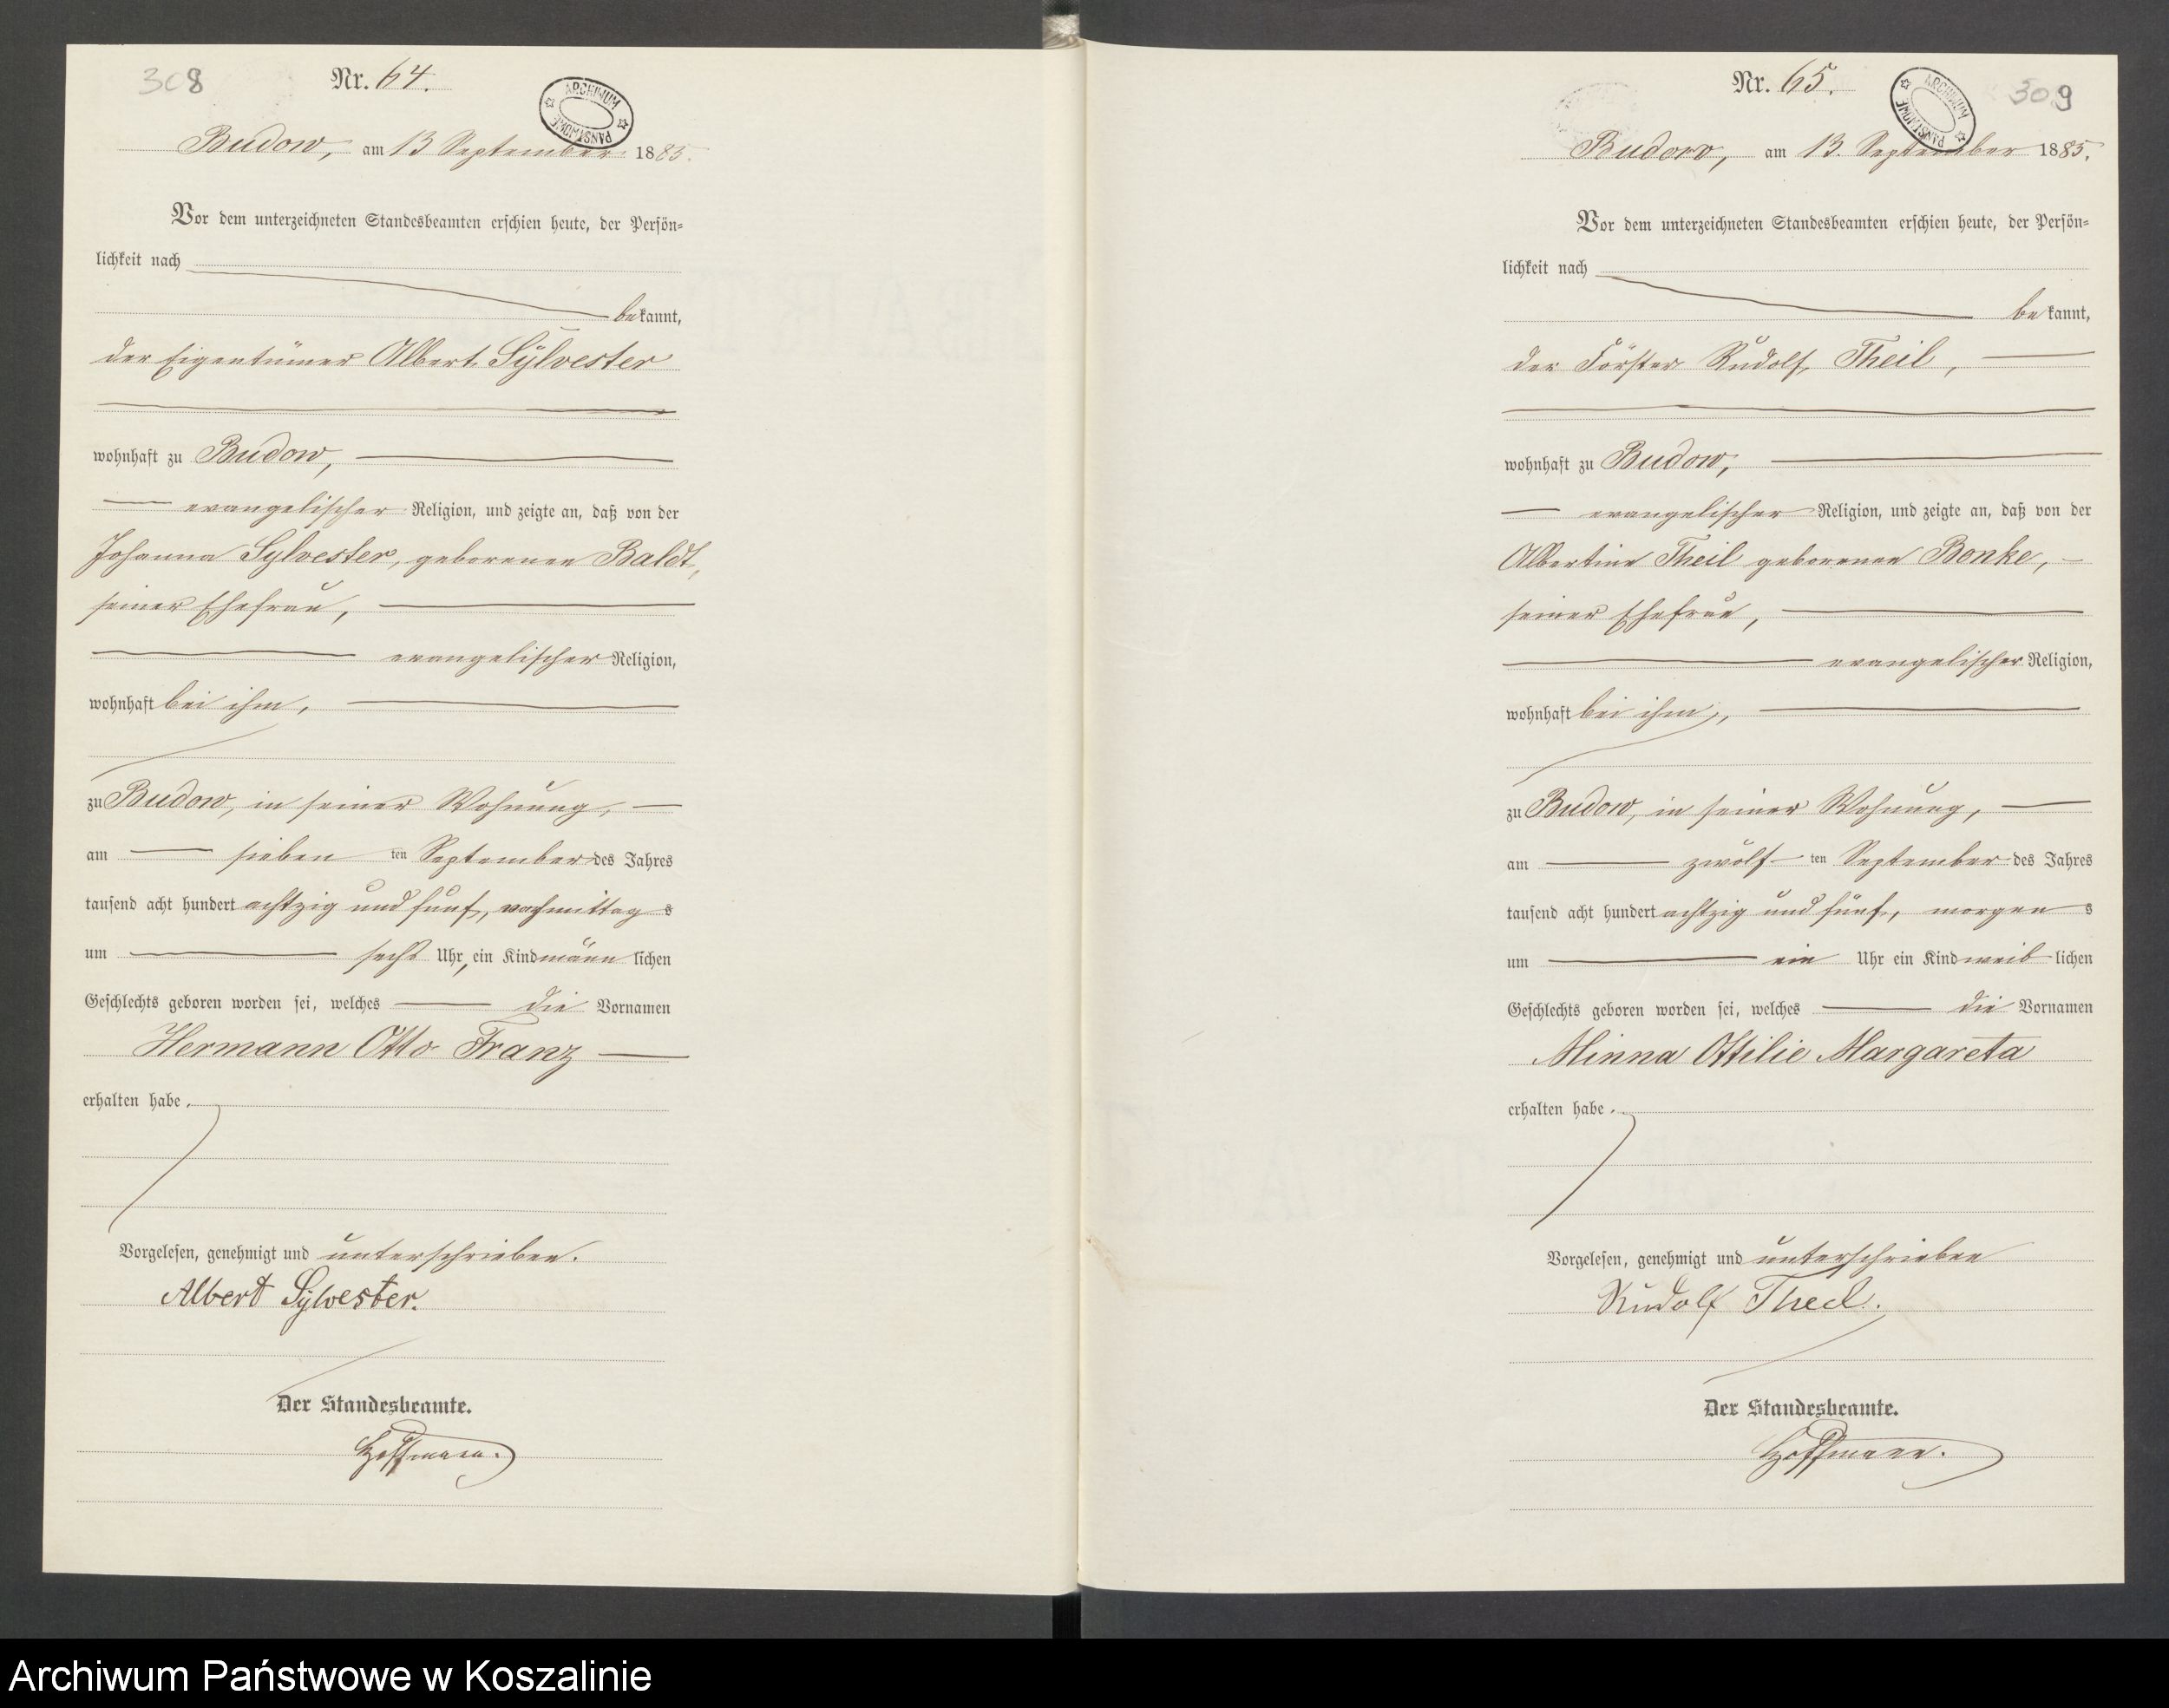 308
Nr. 64.
ARCHIWUM PAŃSTWOWE
Budow, am 13 September 1885.
Vor dem unterzeichneten Standesbeamten erschien heute, der Persön-
lichkeit nach
bekannt,
der Eigentümer Albert Sylvester
wohnhaft zu Budow,
evangelischer Religion, und zeigte an, daß von der
Johanna Sylvester, geborenen Baldt,
seiner Ehefrau,
evangelischer Religion,
wohnhaft bei ihm,
zu Budow, in seiner Wohnung,
am sieben ten September des Jahres
tausend acht hundert achtzig und fünf, nachmittag s
um sechs Uhr, ein Kind männ lichen
Geschlechts geboren worden sei, welches die Vornamen
Hermann Otto Franz
erhalten habe.
Vorgelesen, genehmigt und unterschrieben.
Albert Sylvester.
Der Standesbeamte.
Hoffmann.
Nr. 65.
ARCHIWUM PAŃSTWOWE
309
Budow, am 13. September 1885.
Vor dem unterzeichneten Standesbeamten erschien heute, der Persön-
lichkeit nach
bekannt,
der Förster Rudolf Theil,
wohnhaft zu Budow,
evangelischer Religion, und zeigte an, daß von der
Albertine Theil geborenen Bonke,
seiner Ehefrau,
evangelischer Religion,
wohnhaft bei ihm,
zu Budow, in seiner Wohnung,
am zwölf ten September des Jahres
tausend acht hundert achtzig und fünf, morgen s
um ein Uhr ein Kind weib lichen
Geschlechts geboren worden sei, welches die Vornamen
Minna Ottilie Margareta
erhalten habe.
Vorgelesen, genehmigt und unterschrieben
Rudolf Theil.
Der Standesbeamte.
Hoffmann.
Archiwum Państwowe w Koszalinie